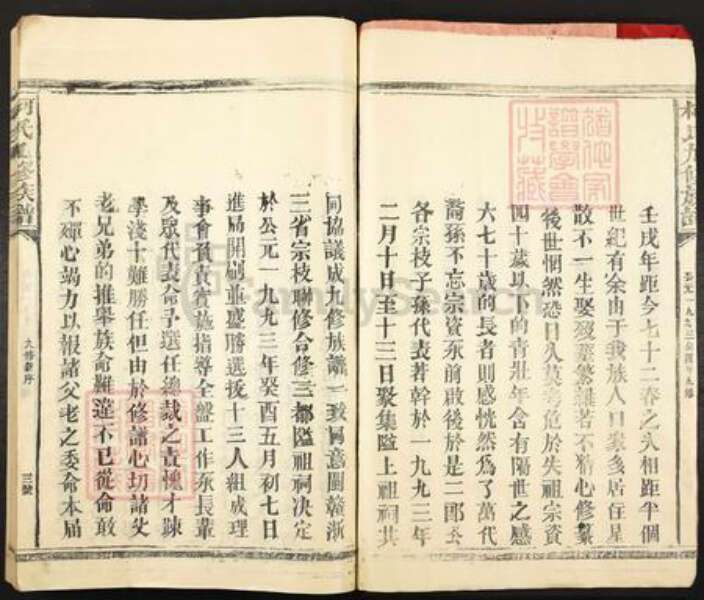 壬戌年距今七十二春之久相距半個
世紀有余由于我族人口衆多居住星
散不一生娶殁葬繁雜若不精心修纂
後世惘然恐日久莫考危於失祖宗資
四十歲以下的青壯年含有隔世之感
六七十歲的長者則感恍然為了萬代
裔孫不忘宗資承前啟後於是二郎公
各宗枝子孫代表若幹於一九九三年
二月十日至十三日聚集隘上祖祠共
同協議成九修族譜一致同意閩贛浙
三省宗枝聯修合修三都隘祖祠决定
於公元一九九三年癸酉五月初七日
進局開刷並盛勝選拔十三人組成理
事會負責實施指導全盤工作永長輩
及眾代表命予選任總裁之責愧才疎
學淺十難勝任但由於修譜心切諸父
老兄弟的推舉族命難違不已從命敢
不殫心竭力以報諸父老之委命本届
九修新序
三號
九修族譜
修族譜
FamilySearch